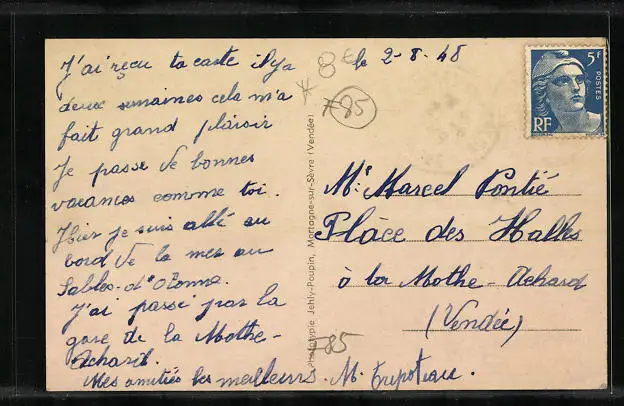 J'ai reçu ta carte il y a
deux semaines cela m'a
fait grand plaisir
Je passe de bonnes
vacances comme toi.
Hier je suis allé au
bord de la mer au
Sables-d'Olonne.
J'ai passé par la
gare de la Mothe-
Achard.
Mes amitiés les meilleurs. M. Tripoteau.
8€
*85
Phototypie Jehly-Poupin, Mortagne-sur-Sèvre (Vendée)
85
le 2-8-48
5F
POSTES
RF
Mr Marcel Pontié
Place des Halles
à la Mothe-Achard
(Vendée)